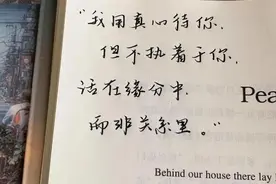 “我用真心待你，
但不执着于你，
活在缘分中，
而非关系里。”
Pea
Behind our house there lay